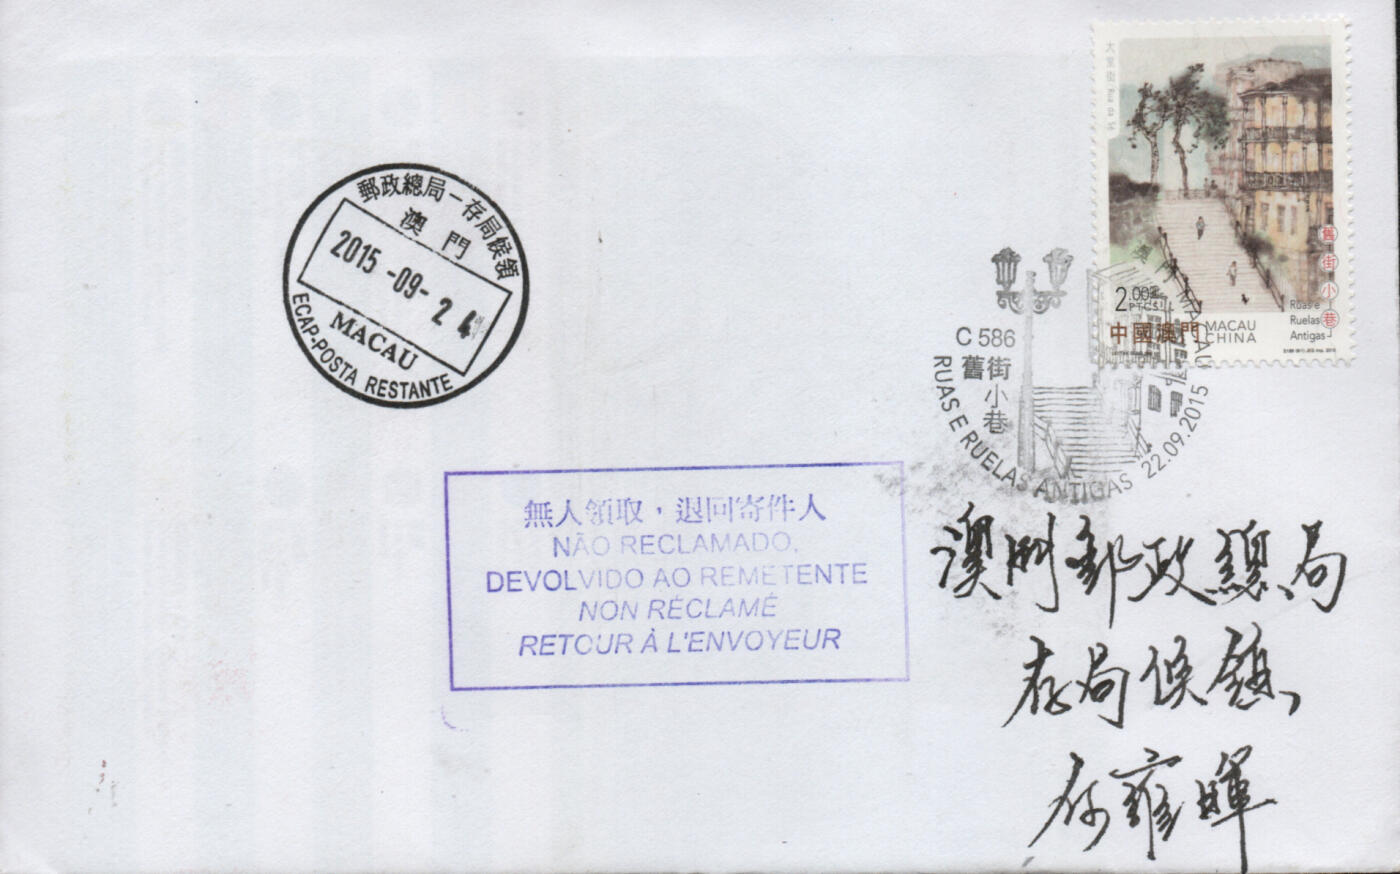 大堂街 Rua da Sé
郵政總局－存局候領
澳門
2015-09-24
MACAU
ECAP-POSTA RESTANTE
舊街小巷
Ruas e
Ruelas
Antigas
2.00
PTCS
中國澳門 MACAU
CHINA
C 586
舊街小巷
RUAS E RUELAS ANTIGAS 22.09.2015
無人領取，退回寄件人
NÃO RECLAMADO,
DEVOLVIDO AO REMETENTE
NON RÉCLAMÉ
RETOUR À L'ENVOYEUR
澳門郵政總局
存局候領